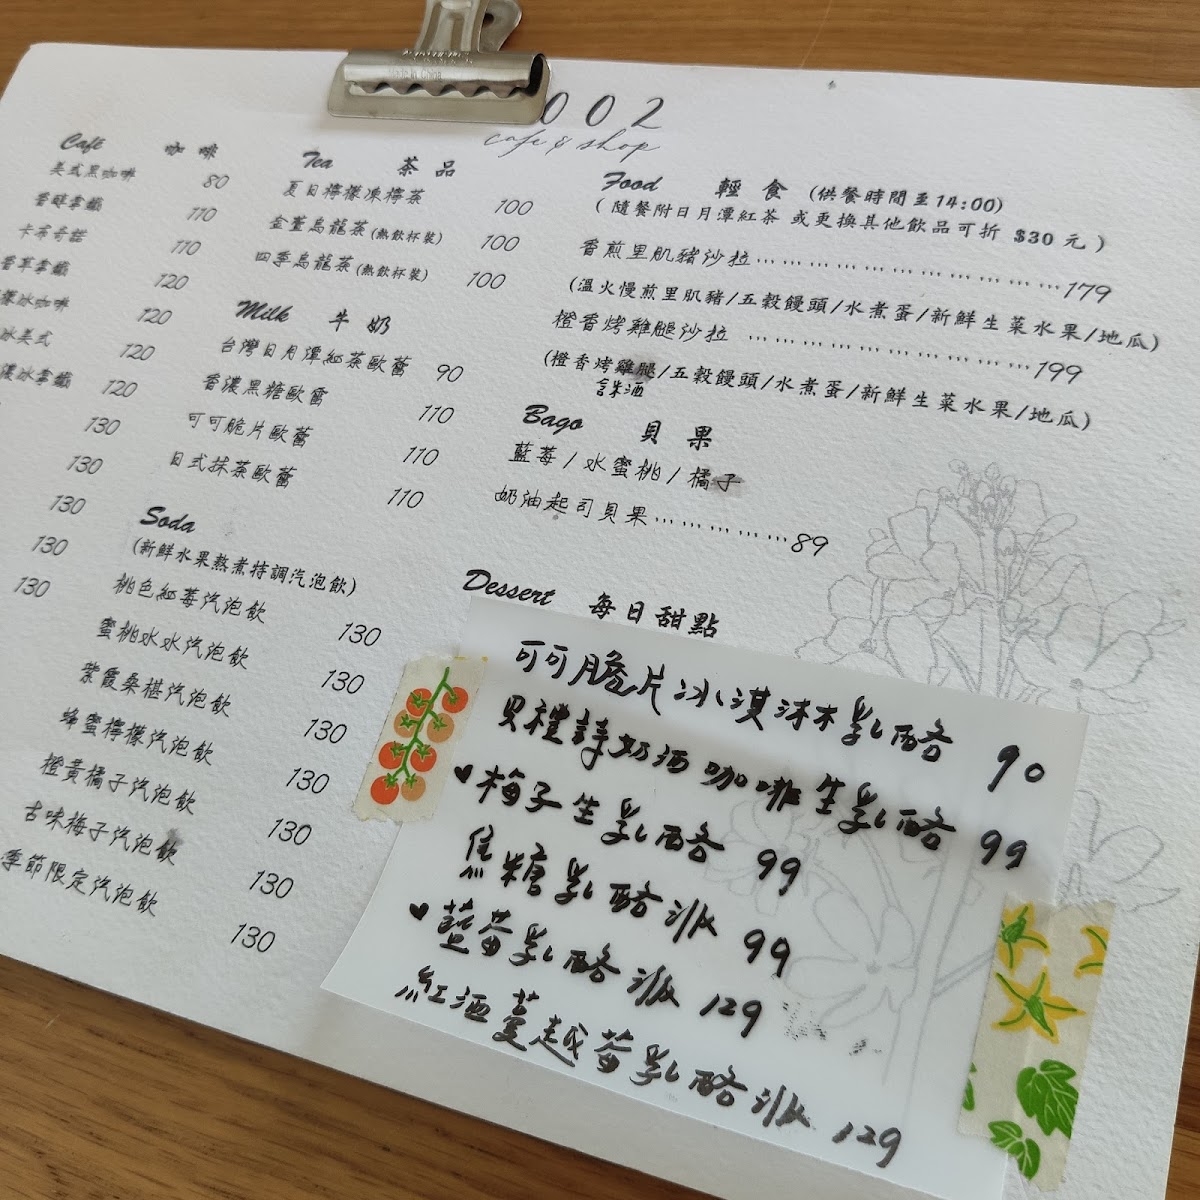 002
cafe & shop
Café 咖啡
美式黑咖啡 80
香醇拿鐵 110
卡布奇諾 110
香草拿鐵 120
檬冰咖啡 120
冰美式 120
濃冰拿鐵 120
130
130
130
130
130
Tea 茶品
夏日檸檬凍檸茶 100
金萱烏龍茶(熱飲杯裝) 100
四季烏龍茶(熱飲杯裝) 100
Milk 牛奶
台灣日月潭紅茶歐蕾 90
香濃黑糖歐蕾 110
可可脆片歐蕾 110
日式抹茶歐蕾 110
Soda
(新鮮水果熬煮特調汽泡飲)
桃色紅莓汽泡飲 130
蜜桃水水汽泡飲 130
紫霞桑椹汽泡飲 130
蜂蜜檸檬汽泡飲 130
橙黃橘子汽泡飲 130
古味梅子汽泡飲 130
季節限定汽泡飲 130
Food 輕食 (供餐時間至14:00)
(隨餐附日月潭紅茶 或更換其他飲品可折 $30 元)
香煎里肌豬沙拉……………………………179
(溫火慢煎里肌豬/五穀饅頭/水煮蛋/新鮮生菜水果/地瓜)
橙香烤雞腿沙拉 ……………………………199
(橙香烤雞腿/五穀饅頭/水煮蛋/新鮮生菜水果/地瓜)
含米酒
Bago 貝果
藍莓/水蜜桃/橘子
奶油起司貝果……………89
Dessert 每日甜點
可可脆片冰淇淋乳酪 90
貝禮詩奶酒咖啡生乳酪 99
♥梅子生乳酪 99
焦糖乳酪派 99
♥藍莓乳酪派 129
紅酒蔓越莓乳酪派 129